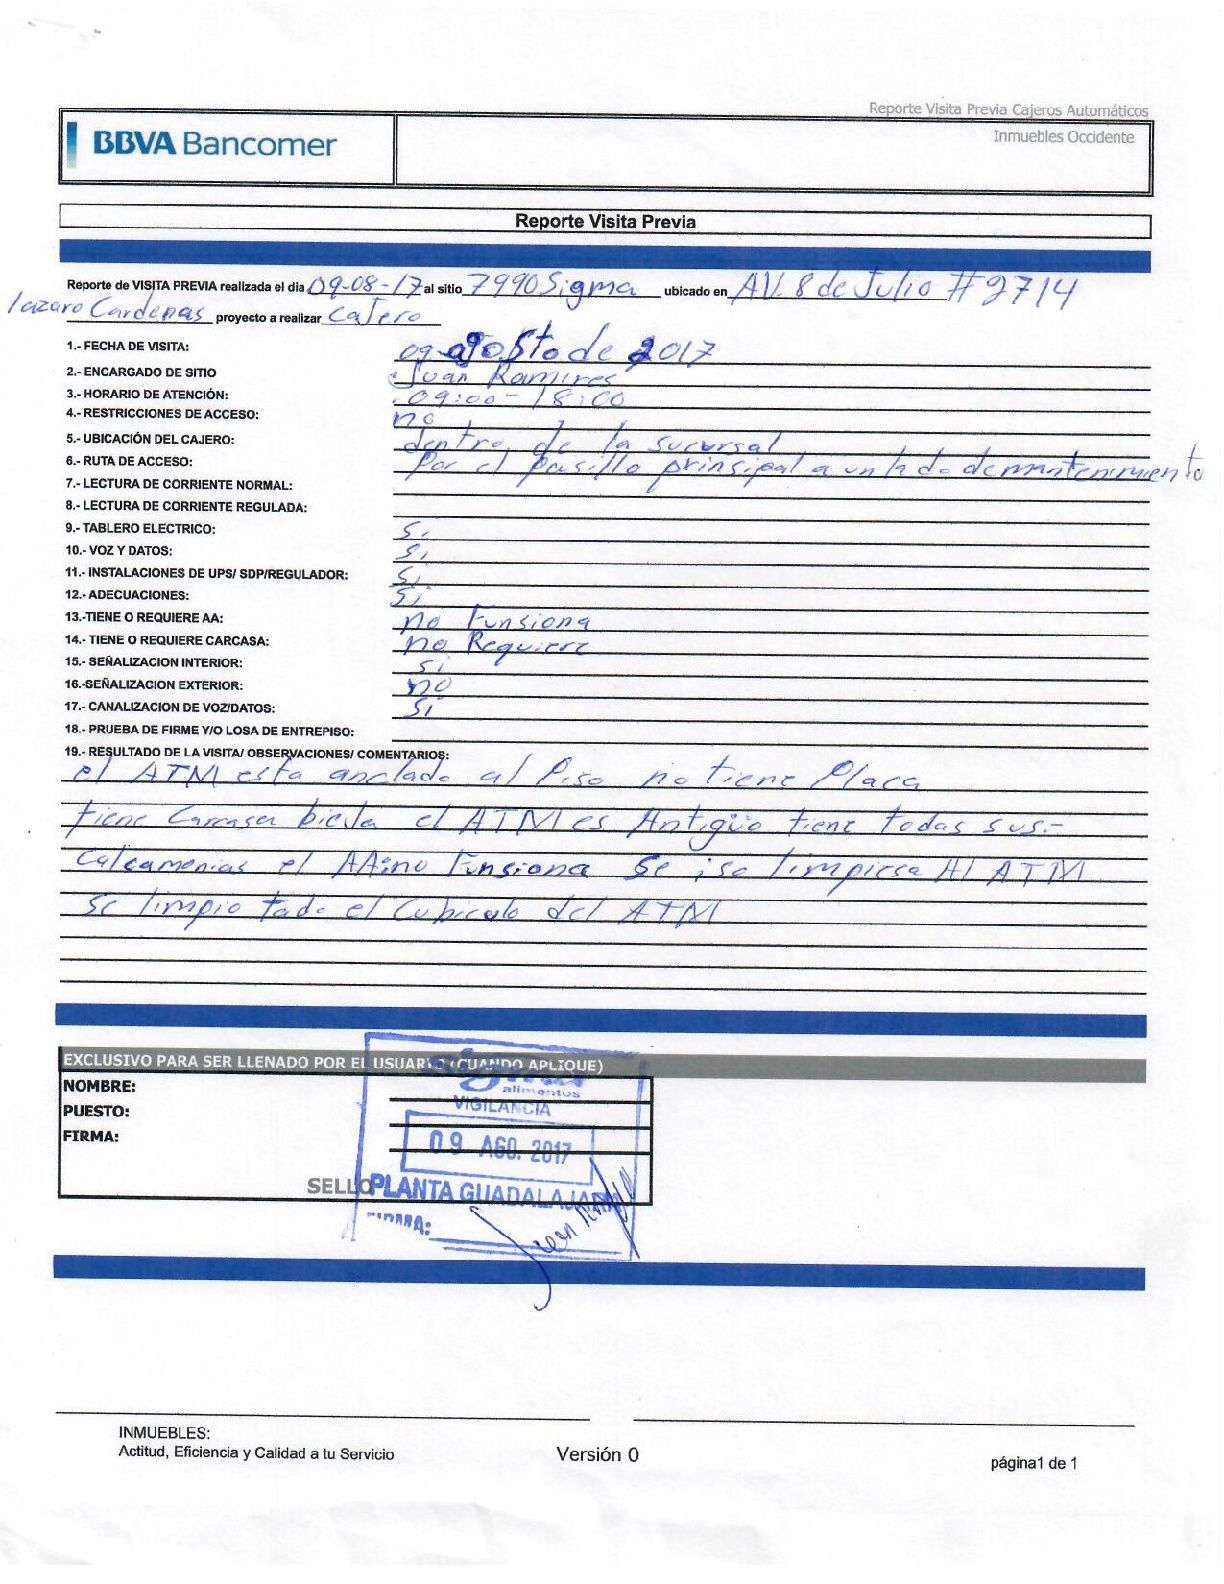 Reporte Visita Previa Cajeros Automáticos
BBVA Bancomer
Inmuebles Occidente
Reporte Visita Previa
Reporte de VISITA PREVIA realizada el dia 09-08-17 al sitio 7990 Sigma ubicado en AV. 8 de Julio #2714
lazaro Cardenas proyecto a realizar Cajero
1.- FECHA DE VISITA: 09 agosto de 2017
2.- ENCARGADO DE SITIO Juan Ramires
3.- HORARIO DE ATENCIÓN: 09:00-18:00
4.- RESTRICCIONES DE ACCESO: no
5.- UBICACIÓN DEL CAJERO: dentro de la sucursal
6.- RUTA DE ACCESO: Por el pasillo prinsipal a un lado de mantenimiento
7.- LECTURA DE CORRIENTE NORMAL:
8.- LECTURA DE CORRIENTE REGULADA:
9.- TABLERO ELECTRICO: Si
10.- VOZ Y DATOS: Si
11.- INSTALACIONES DE UPS/ SDP/REGULADOR: Si
12.- ADECUACIONES: Si
13.-TIENE O REQUIERE AA: no Funsiona
14.- TIENE O REQUIERE CARCASA: no Requiere
15.- SEÑALIZACION INTERIOR: si
16.-SEÑALIZACION EXTERIOR: no
17.- CANALIZACION DE VOZ/DATOS: Si
18.- PRUEBA DE FIRME Y/O LOSA DE ENTREPISO:
19.- RESULTADO DE LA VISITA/ OBSERVACIONES/ COMENTARIOS:
el ATM esta anclado al Piso no tiene Placa
tiene Carcasa el ATM es Antigüo tiene todas sus.-
Calcamonias el AA:no Funsiona Se iso limpiesa Al ATM
Se limpio todo el Cubiculo del ATM
EXCLUSIVO PARA SER LLENADO POR EL USUARIO (CUANDO APLIQUE)
sigma
alimentos
NOMBRE:
VIGILANCIA
PUESTO:
FIRMA:
09 AGO. 2017
SELLO
PLANTA GUADALAJARA
FIRMA:
INMUEBLES:
Actitud, Eficiencia y Calidad a tu Servicio
Versión 0
página1 de 1